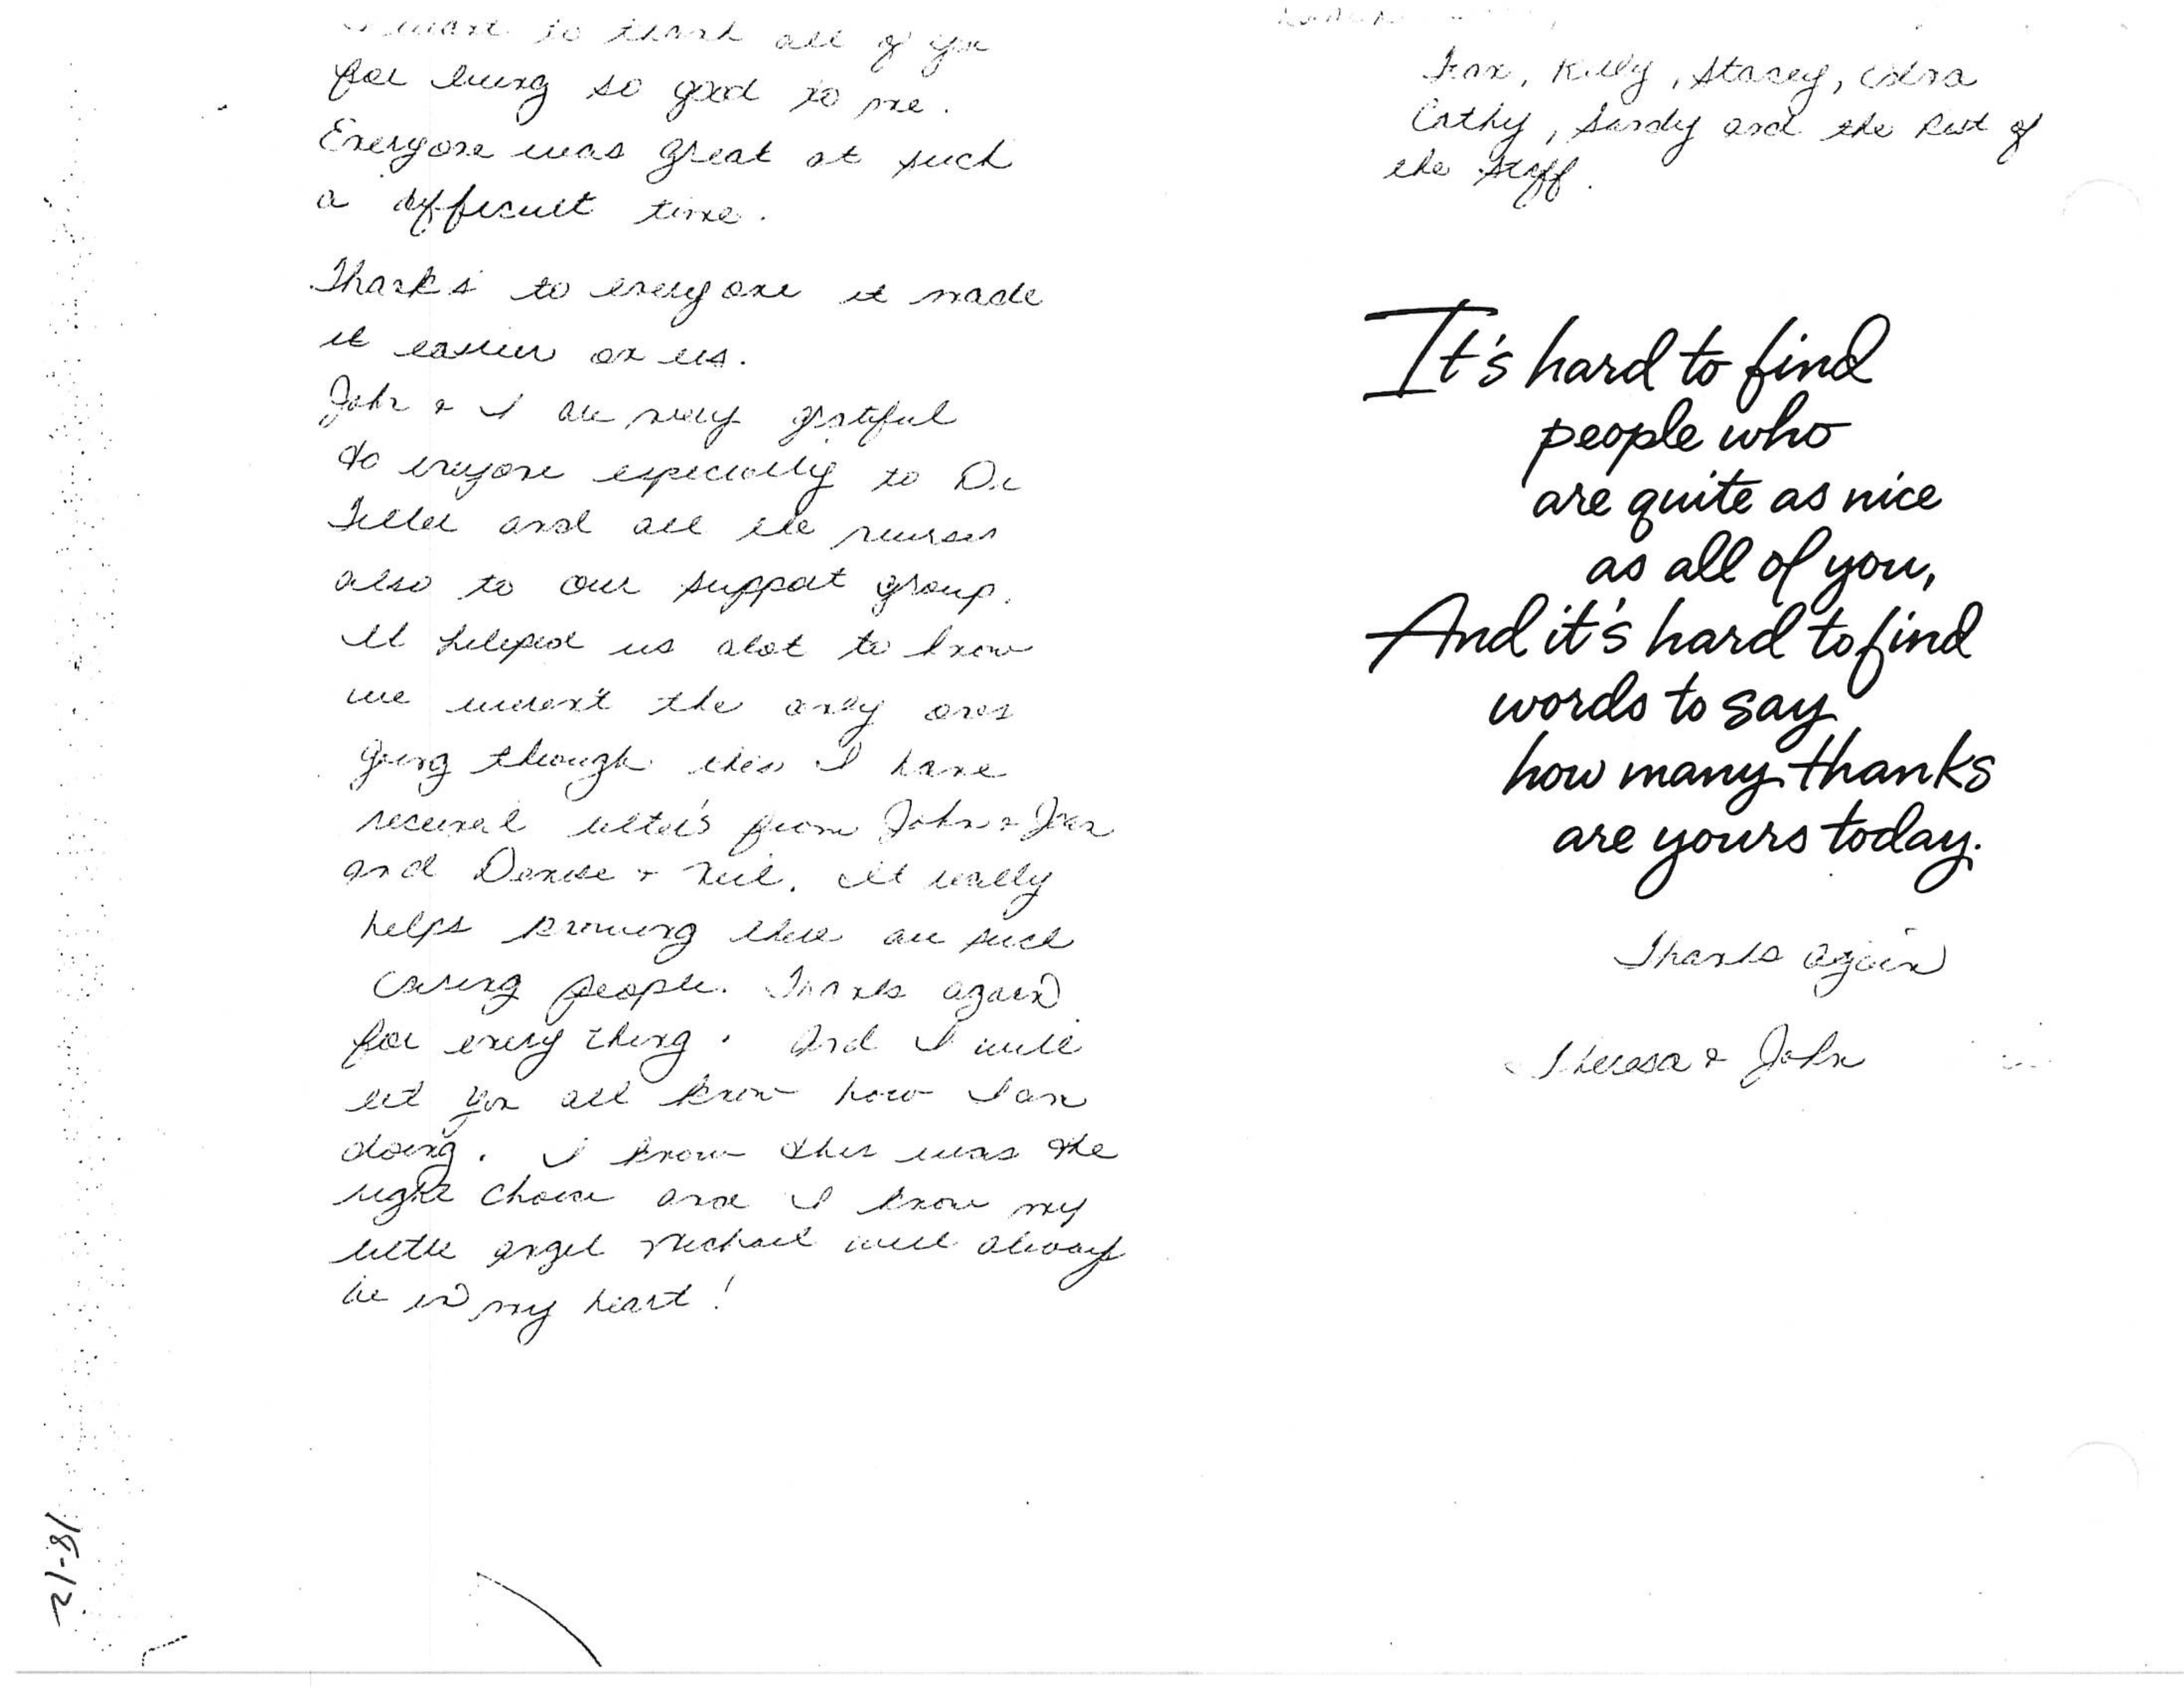 I want to thank all of you
for being so good to me.
Everyone was great at such
a difficult time.
Thank's to everyone it made
it easier on us.
John & I are very gratiful
to eveyone especially to Dr
Tiller and all the nurses
also to our support group.
It helped us alot to know
we weren't the only ones
going through this I have
received letter's from John &
and Denise & Neil. It really
helps knowing there are such
caring people. Thanks again
for every thing. And I will
let you all know how I am
doing. I know this was the
right choice and I know my
little angel Michael will always
be in my heart!
Kelly, Stacey,
Cathy, Sandy and the Rest of
the Staff.
It's hard to find
people who
are quite as nice
as all of you,
And it's hard to find
words to say
how many thanks
are yours today.
Thanks again
Theresa & John
18-12